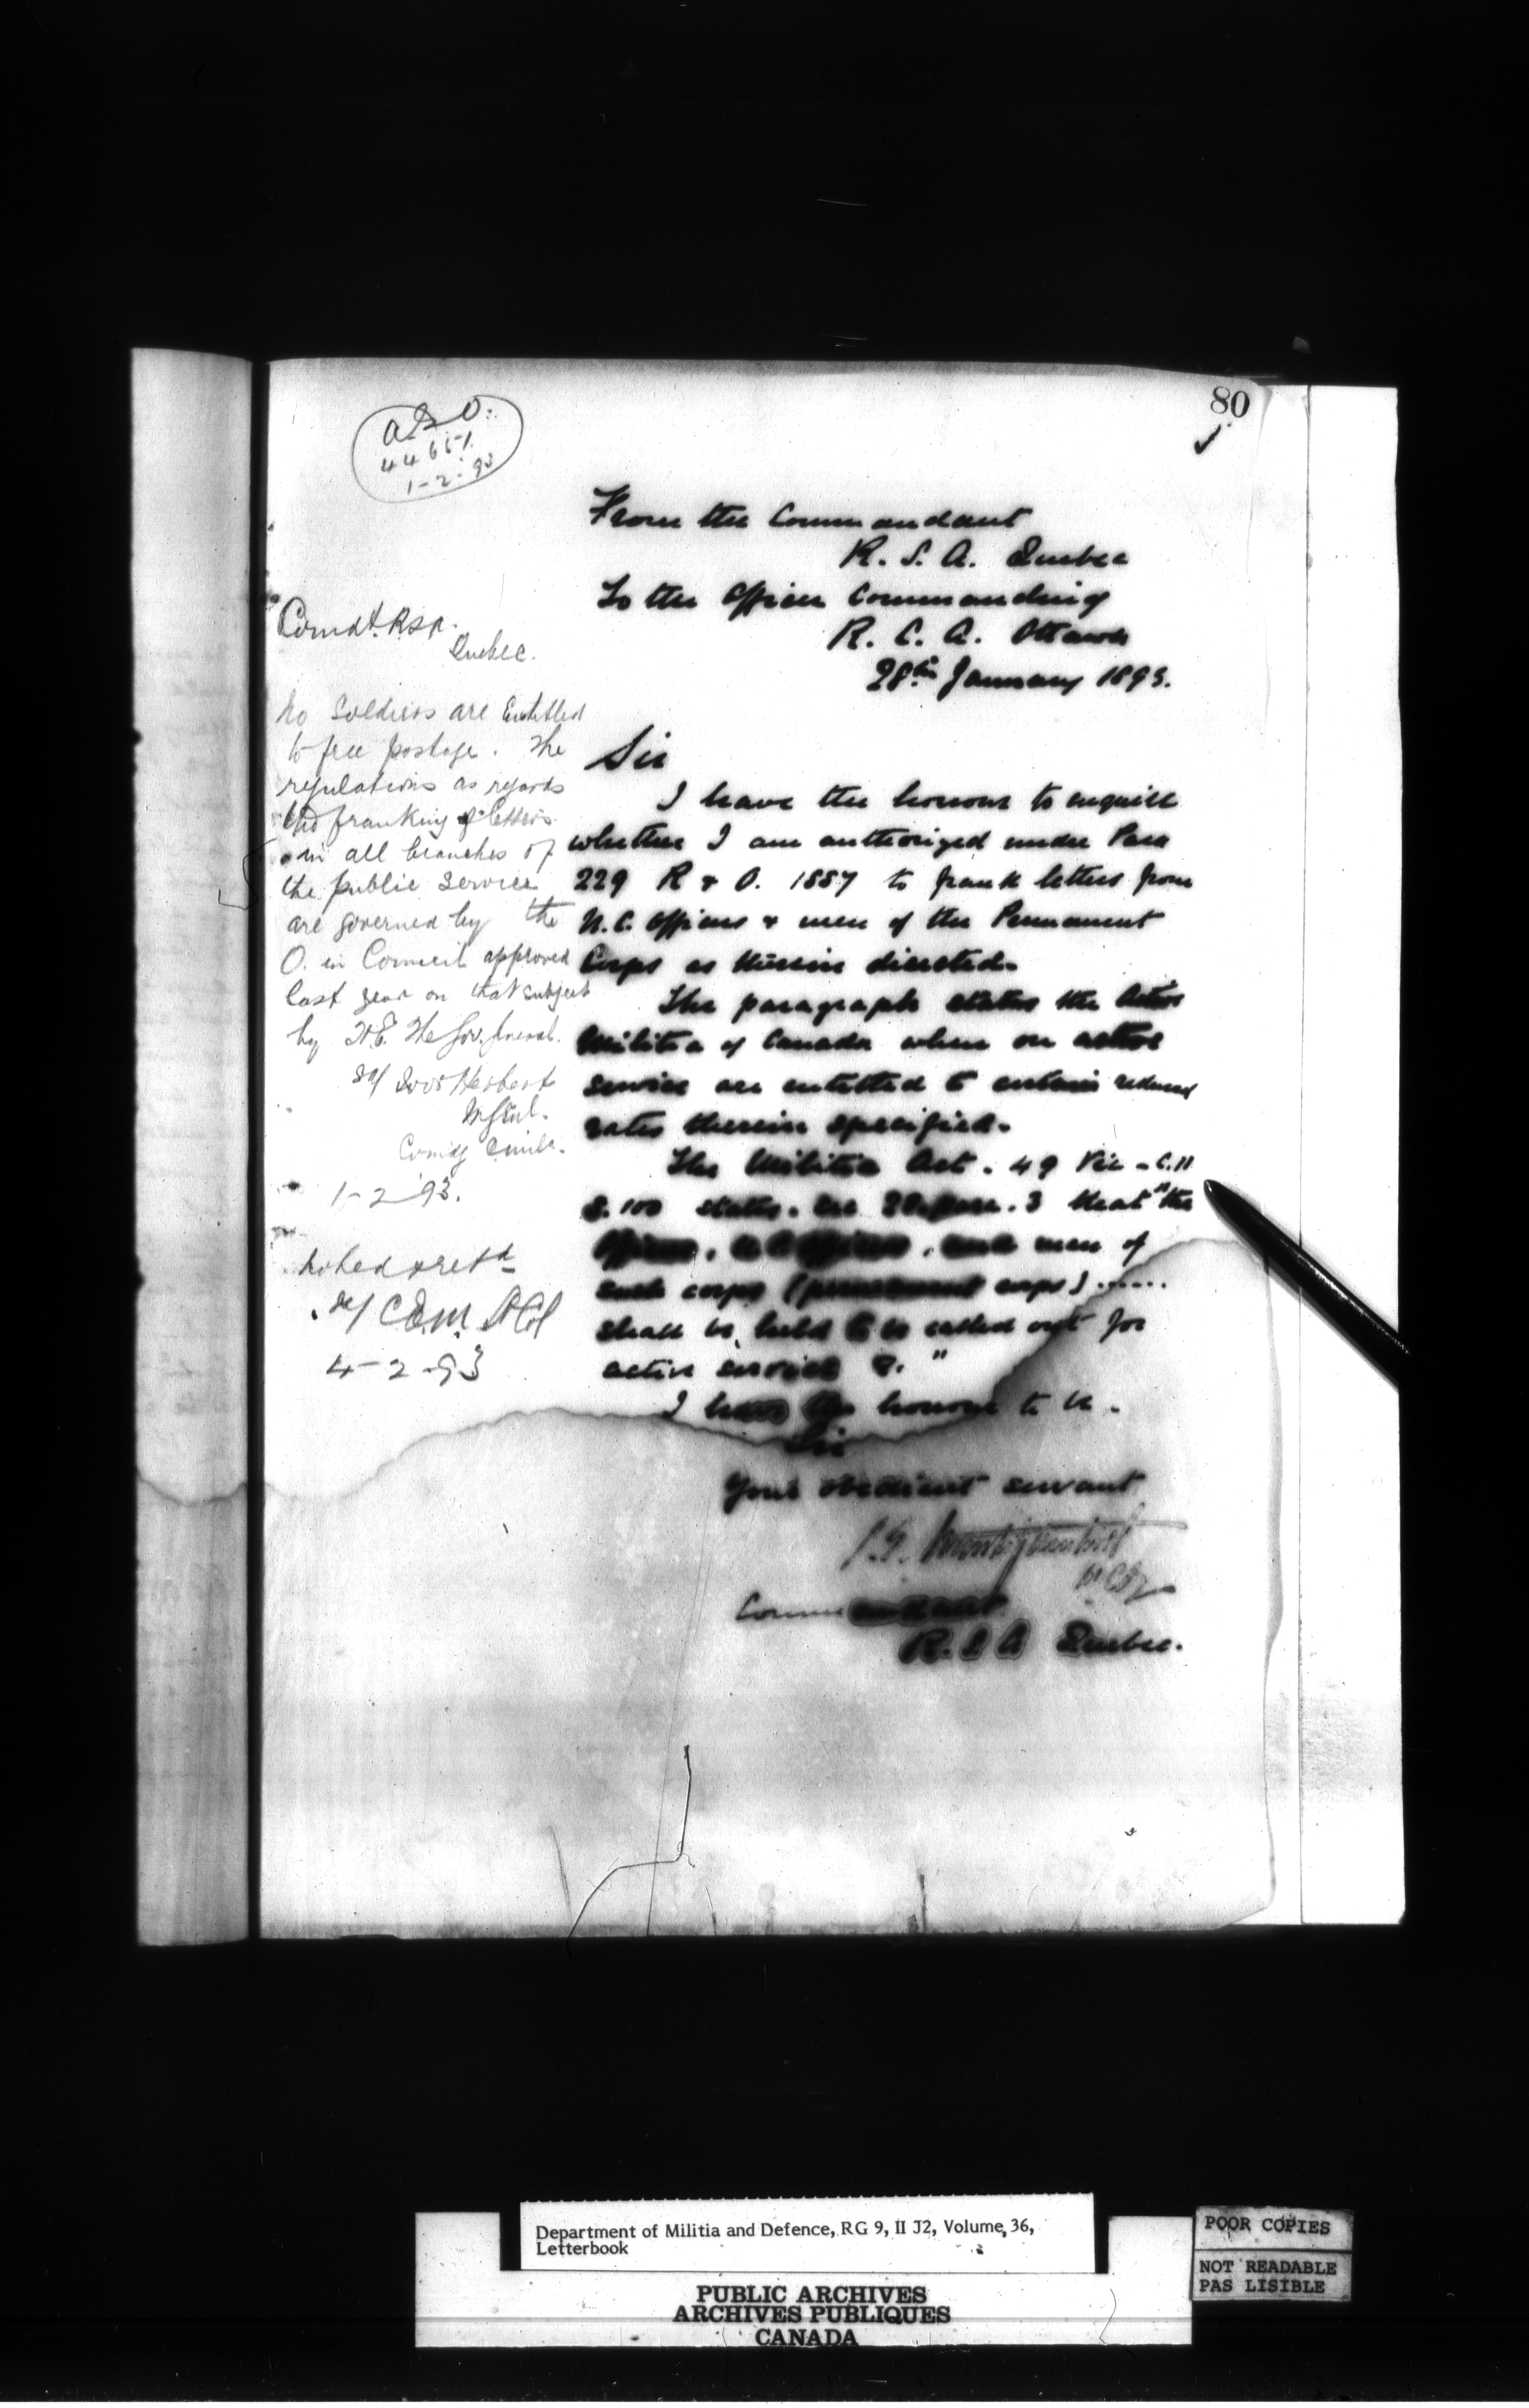 80
A.G.O.
44651
1-2-93
From the Commandant
R. S. A. Quebec
To the Officer Commanding
R. C. A. Ottawa
28th January 1893.
Sir
I have the honour to enquire
whether I am authorized under Para
229 R & O. 1887 to frank letters from
N.C. Officers & men of the Permanent
Corps as therein directed.
The paragraph states the Active
Militia of Canada when on active
service are entitled to certain reduced
rates therein specified.
The Militia Act. 49 Vic - C.11
S. 100 states. sec 28. para. 3 that "the
Officers, N C Officers, and men of
such corps (permanent corps) .....
shall be held to be called out for
active service &. "
I have the honour to be.
Sir
Your obedient servant
Commandant
R. S. A Quebec.
Comdt. RSA.
Quebec.
No Soldiers are Entitled
to free postage. The
regulations as regards
the franking of letters
in all branches of
the public service
are governed by the
O. in Council approved
last year on that subject
by H.E. The Gov. General.
sd/ Ivor Herbert
M Genl.
Comdg Canada.
1-2-93.
Noted & retd
sd/ C.E.M. Lt Col
4-2-93
Department of Militia and Defence, RG 9, II J2, Volume 36,
Letterbook
PUBLIC ARCHIVES
ARCHIVES PUBLIQUES
CANADA
POOR COPIES
NOT READABLE
PAS LISIBLE